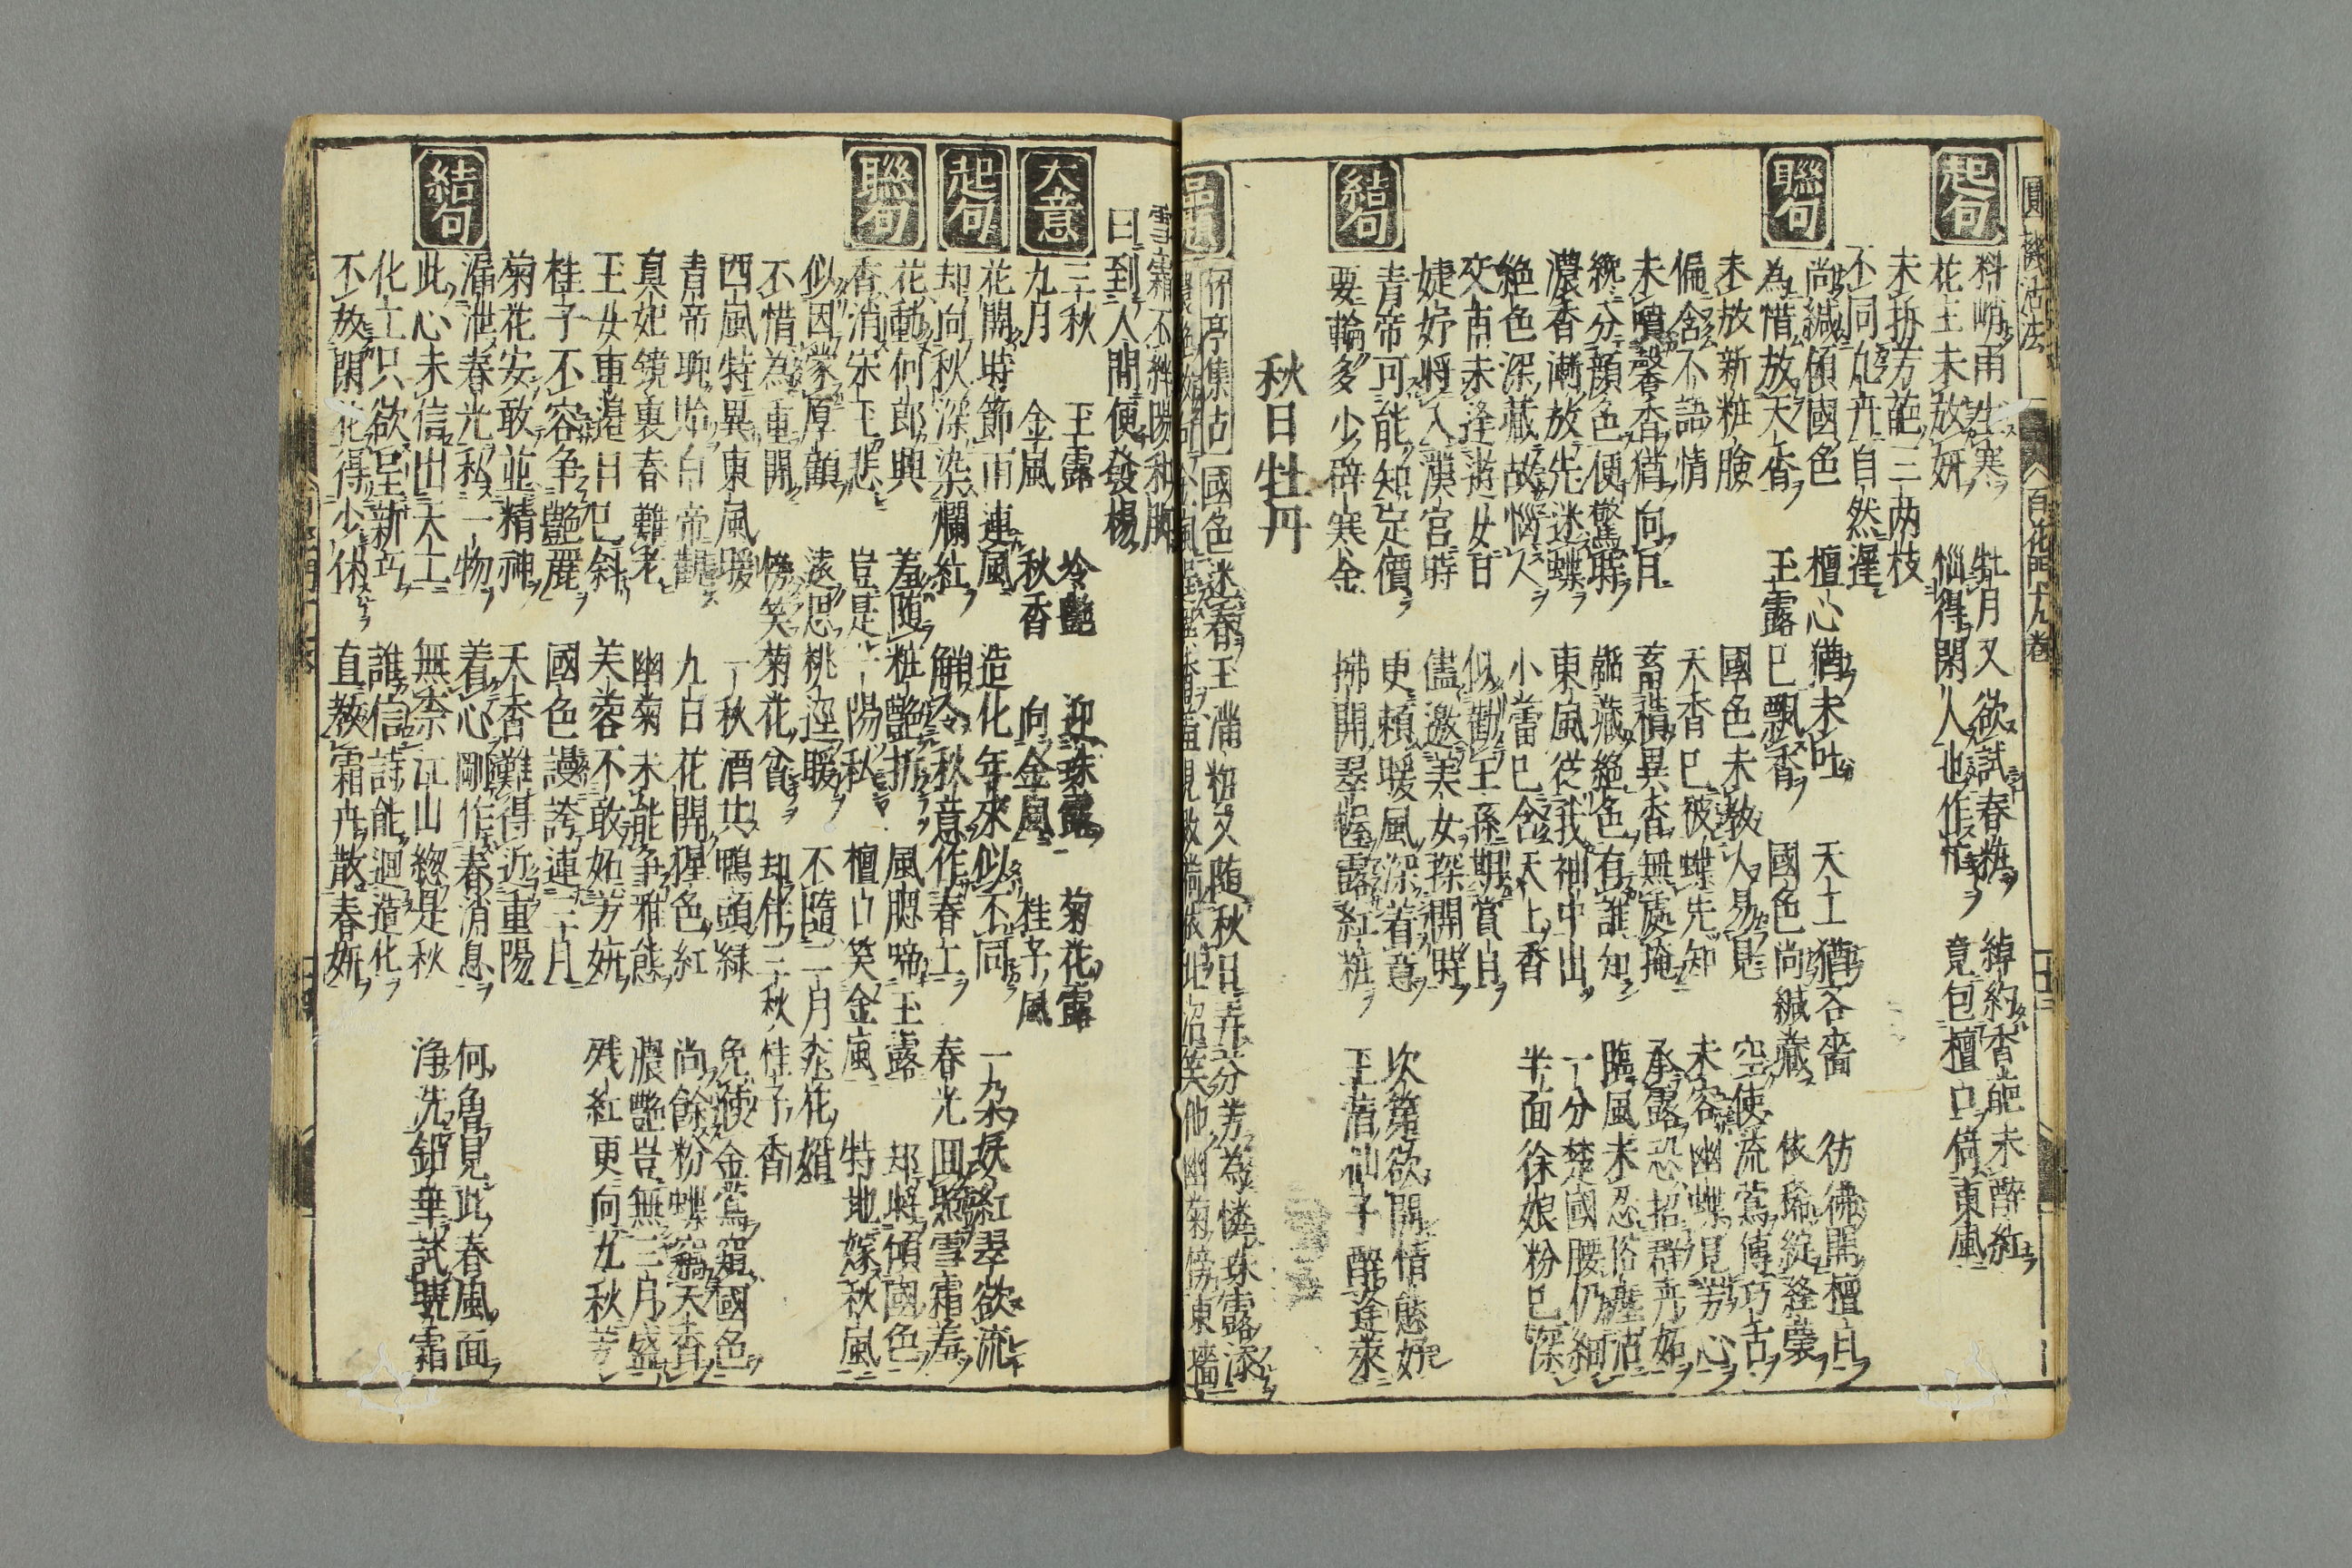 圓機活法
百花門十九卷
起句
料峭雨生寒 牡月又欲試春粧 綽約香葩未醉紅
花王未放妍 惱得閑人也作忙 竟包檀口倚東風
未拆芳葩三两枝
不同凡卉自然遲
聯句
尚緘傾國色 檀心猶未吐 天工猶吝嗇 彷彿開檀口
為惜放天香 玉露已飄香 國色尚緘藏 依稀綻絳囊
未放新粧臉 國色未教人易見 空使流鶯傳巧舌
偏含不語情 天香已被蝶先知 未容幽蝶見芳心
未噴馨香猶向日 畜積異香無處掩 承露恐招群卉妬
纔分顔色便驚時 韜藏絶色有誰知 臨風未忍俗塵沾
濃香漸放先迷蝶 東風從我袖中出 一分楚國腰仍細
絶色深藏故惱人 小蕾已含天上香 半面徐娘粉已深
交甫未逢遊女日 似勸王孫期賞日
婕妤將入漢宮時 儘邀美女探開時
結句
青帝可能知定價 更頼暖風深着意 次第欲開情態好
要輪多少辟寒金 拂開翠幄露紅粧 玉清仙子醉途來
秋日牡丹
品題
竹亭集古 國色迷春玉滿粧又随秋日弄分芳為憐珠露添
霜不絆陽和胸
日到人間便發楊
大意
三秋 玉露 冷艶 迎珠露 菊花露
九月 金風 秋香 向金風 桂子風
起句
花開時節雨連風 造化年來似不同 一朶妖紅翠欲流
却向秋深染爛紅 解令秋意作春工 春光回照雪霜羞
聯句
花動何郎興 羞随粧艶折 風腮啼玉露 却將傾國色
香消宋玉悲 豈是十陽秋 檀口笑金風 特地嫁秋風
似因蒙厚顧 遠思桃逕暖 不隨二月桃花婿
不惜為重開 傍笑菊花貧 却伴三秋桂子香
西風特異東風暖 一秋酒共鴨頭緑 免使金鶯窺國色
青帝聊貽白帝觀 九白花開猩色紅 尚餘粉蝶竊天香
真妃鏡裏春難老 幽菊未能争雅態 濃艶豈無三月盛
玉女車邊日已斜 芙蓉不敢妬芳妍 残紅更向九秋芳
桂子不容争艶麗 國色謾誇連二月
菊花安敢並精神 天香難得近重陽
結句
漏泄春光私一物 着心剛作春消息 何魯見此春風面
此心未信出天工 無柰江山緫是秋 浄洗鉛華試曉霜
化工只欲呈新巧 誰信詩能迴造化
不放閑花得少休 直教霜卉散春妍